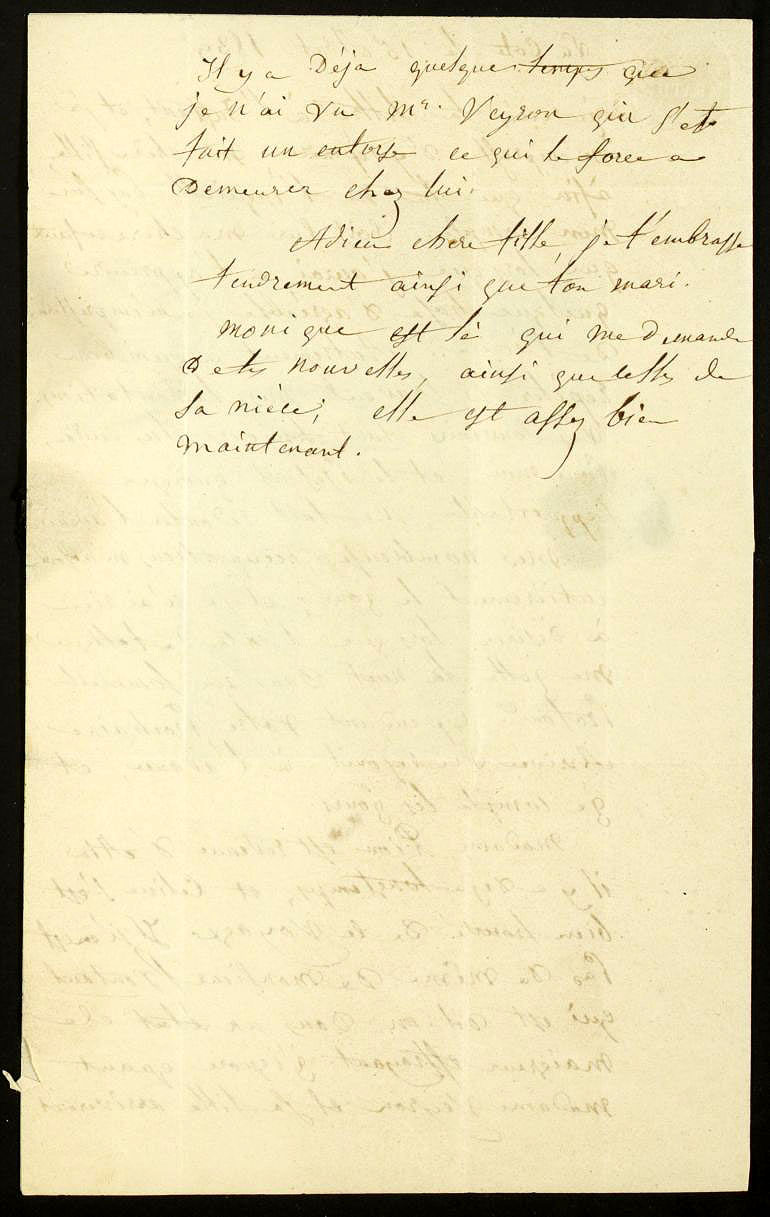 Il y a Déja quelque temps que
je n'ai vu Mr. Veyron qui s'est
fait un entorse ce qui le force a
Demeurer chez lui.
Adieu chere fille, je t'embrasse
tendrement ainsi que ton mari.
Monique est là qui me Demande
De tes nouvelles, ainsi que celles de
sa nièce; elle est assez bien
maintenant.